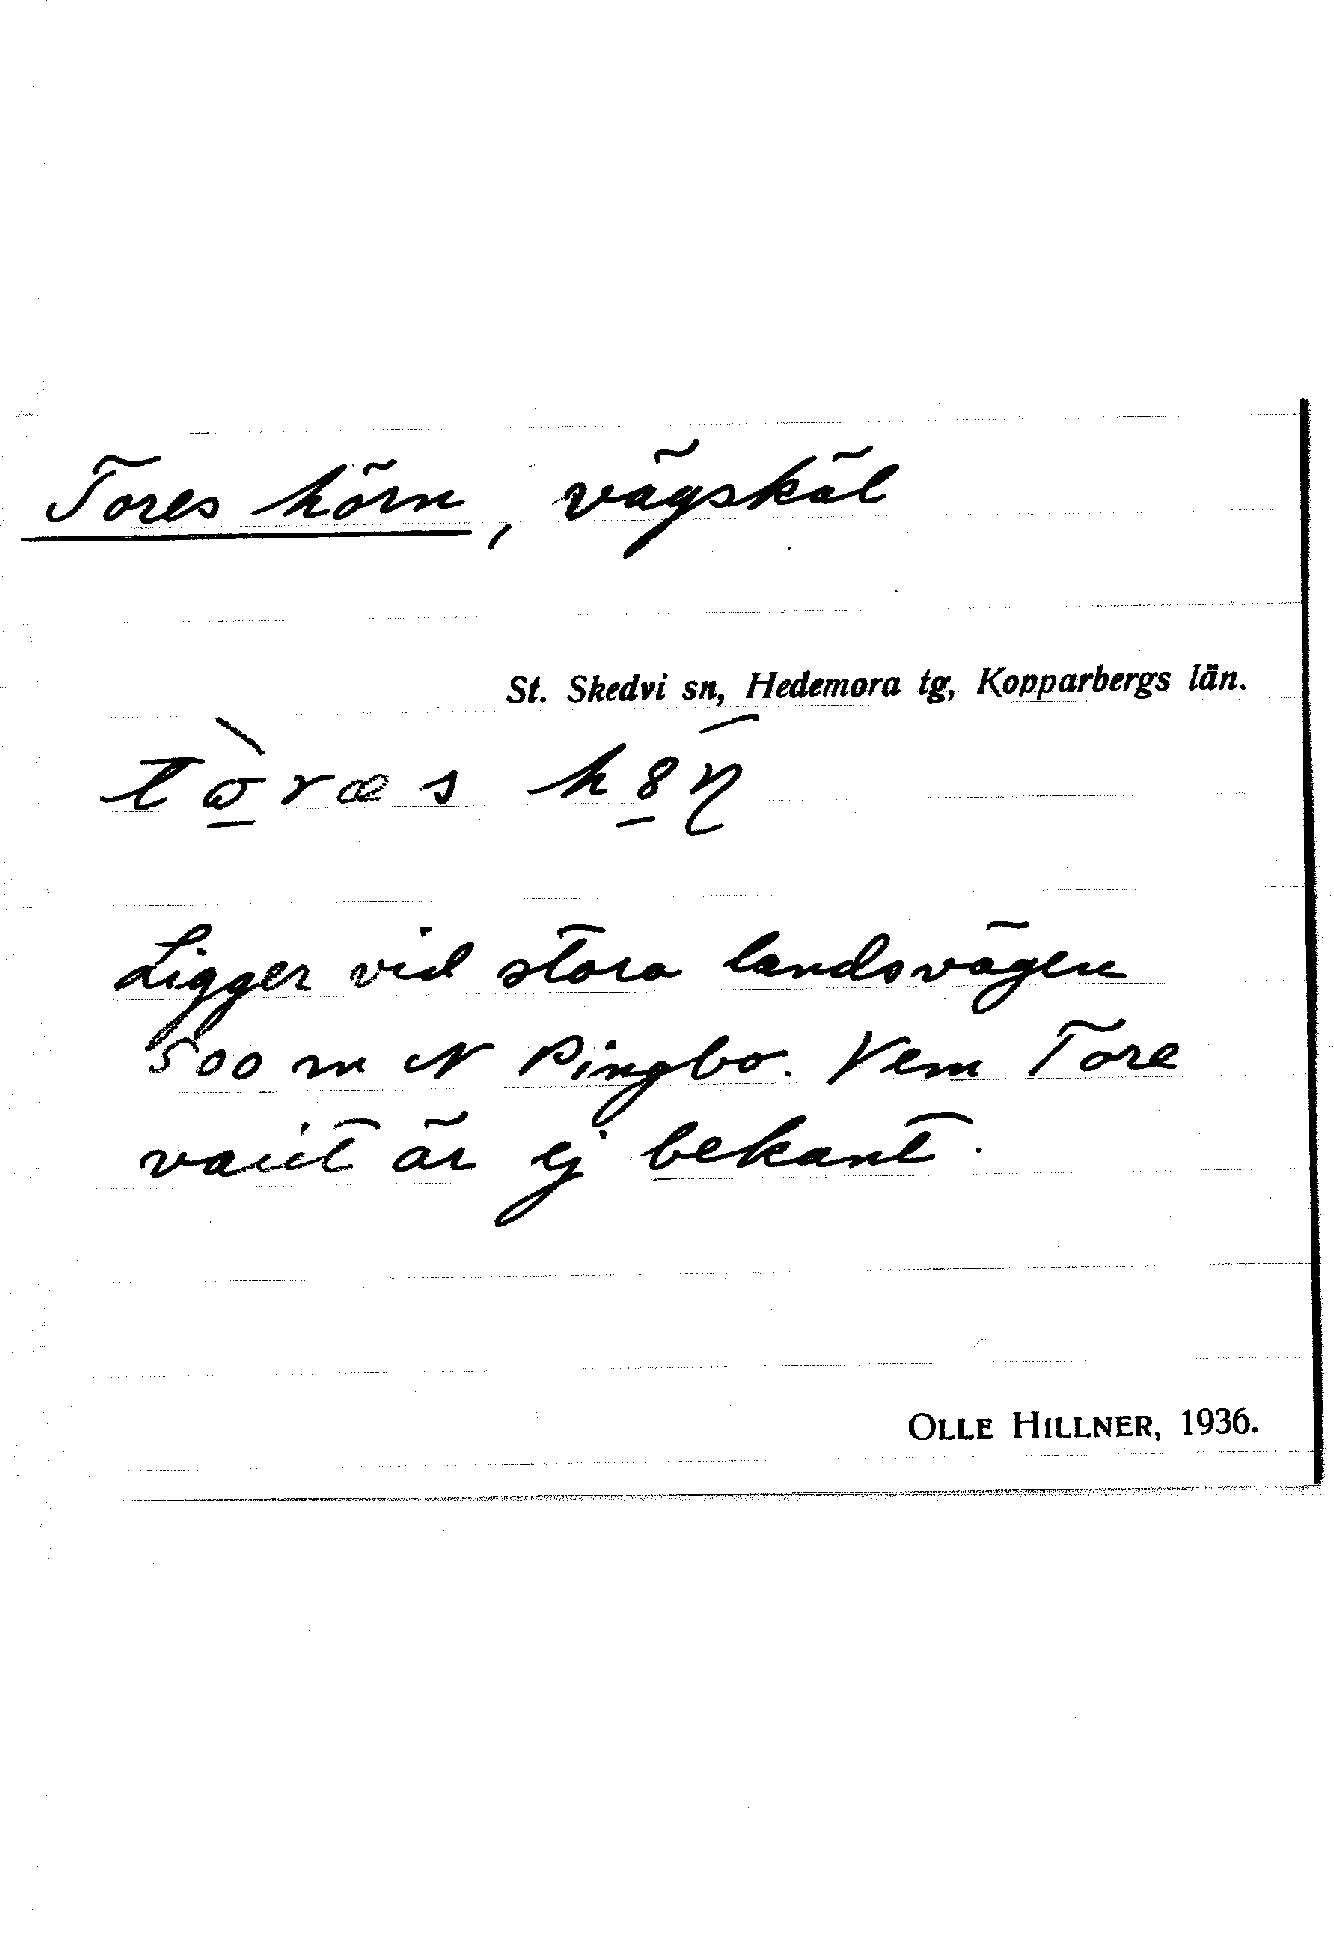 Tores hörn, vägskäl
St. Skedvi sn, Hedemora tg, Kopparbergs län.
Ligger vid stora landsvägen
500 m N Pingbo. Vem Tore
varit är ej bekant.
OLLE HILLNER, 1936.